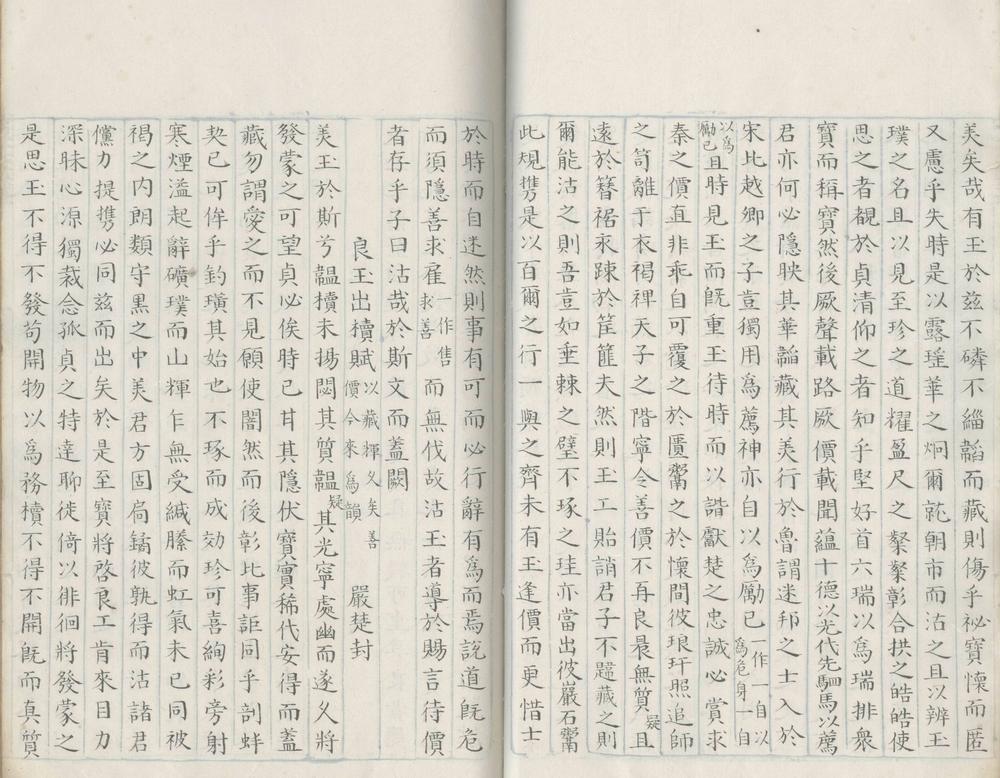 美矣哉有玉於茲不磷不緇韜而藏則傷乎祕寶懷而匿
又慮乎失時是以露瑤華之炯爾就朝市而沽之且以辨玉
璞之名且以見至珍之道耀盈尺之粲粲彰合拱之皓皓使
思之者覩於貞清仰之者知乎堅好首六瑞以為瑞排衆
寶而稱寶然後厥聲載路厥價載聞蘊十德以光代先駟馬以薦
君亦何必隱映其華韞藏其美行於魯謂迷邦之士入於
宋比越鄉之子豈獨用為薦神亦自以為勵己一作一自以為危身一自
以為勵己且時見玉而既重玉待時而以諧獻楚之忠誠心賞求
秦之價直非乖自可覆之於匱鬻之於懷間彼琅玕照追師
之笥離于衣褐裨天子之階寧令善價不再良晨無質疑且
遠於簪裾永踈於筐篚夫然則玉工貽誚君子不韙藏之則
爾能沽之則吾豈如垂棘之璧不琢之珪亦當出彼巖石鬻
此規攜是以百爾之行一與之齊未有玉逢價而更惜士
於時而自迷然則事有可而必行辭有為而焉說道既危
而須隱善求雇一作售求善而無伐故沽玉者導於賜言待價
者存乎子曰沽哉於斯文而蓋闕
良玉出櫝賦以藏輝久矣善價今來為韻 嚴楚封
美玉於斯兮韞櫝未揚閟其質韞疑其光寧處幽而遂久將
發蒙之可望貞必俟時已甘其隱伏寶實稀代安得而蓋
藏勿謂愛之而不見願使闇然而後彰比事詎同乎剖蚌
契已可侔乎釣璜其始也不琢而成効珍可喜絢彩旁射
寒煙溢起辭礦璞而山輝乍無受緘縢而虹氣未已同被
褐之內朗類守黑之中美君方固扃鐍彼孰得而沽諸君
儻力提攜必同茲而出矣於是至寶將啓良工肯來目力
深昧心源獨裁念孤貞之特達聊徙倚以徘徊將發蒙之
是思玉不得不發苟開物以為務櫝不得不開既而真質